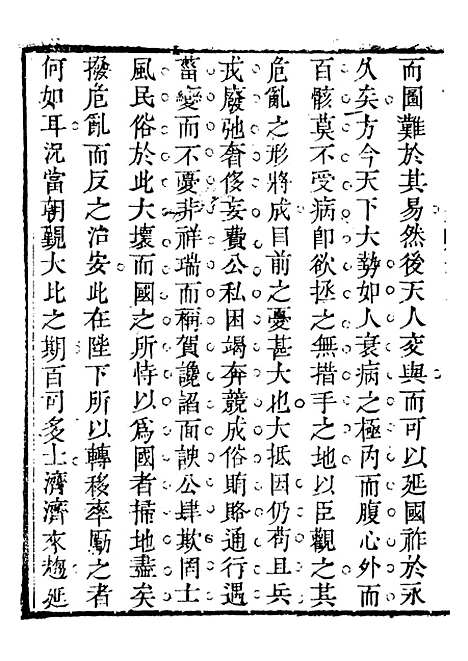 而圖難於其易然後天人交與而可以延國祚於永
久矣方今天下大勢如人衰病之極內而腹心外而
百骸莫不受病卽欲拯之無措手之地以臣觀之其
危亂之形將成目前之憂甚大也大抵因仍苟且兵
戎廢弛奢侈妄費公私困竭奔競成俗賄賂通行遇
菑變而不憂非祥瑞而稱賀讒諂面諛公肆欺罔士
風民俗於此大壞而國之所恃以爲國者掃地盡矣
撥危亂而反之治安此在陛下所以轉移率勵之者
何如耳況當朝覲大比之期百司多士濟濟來趨延